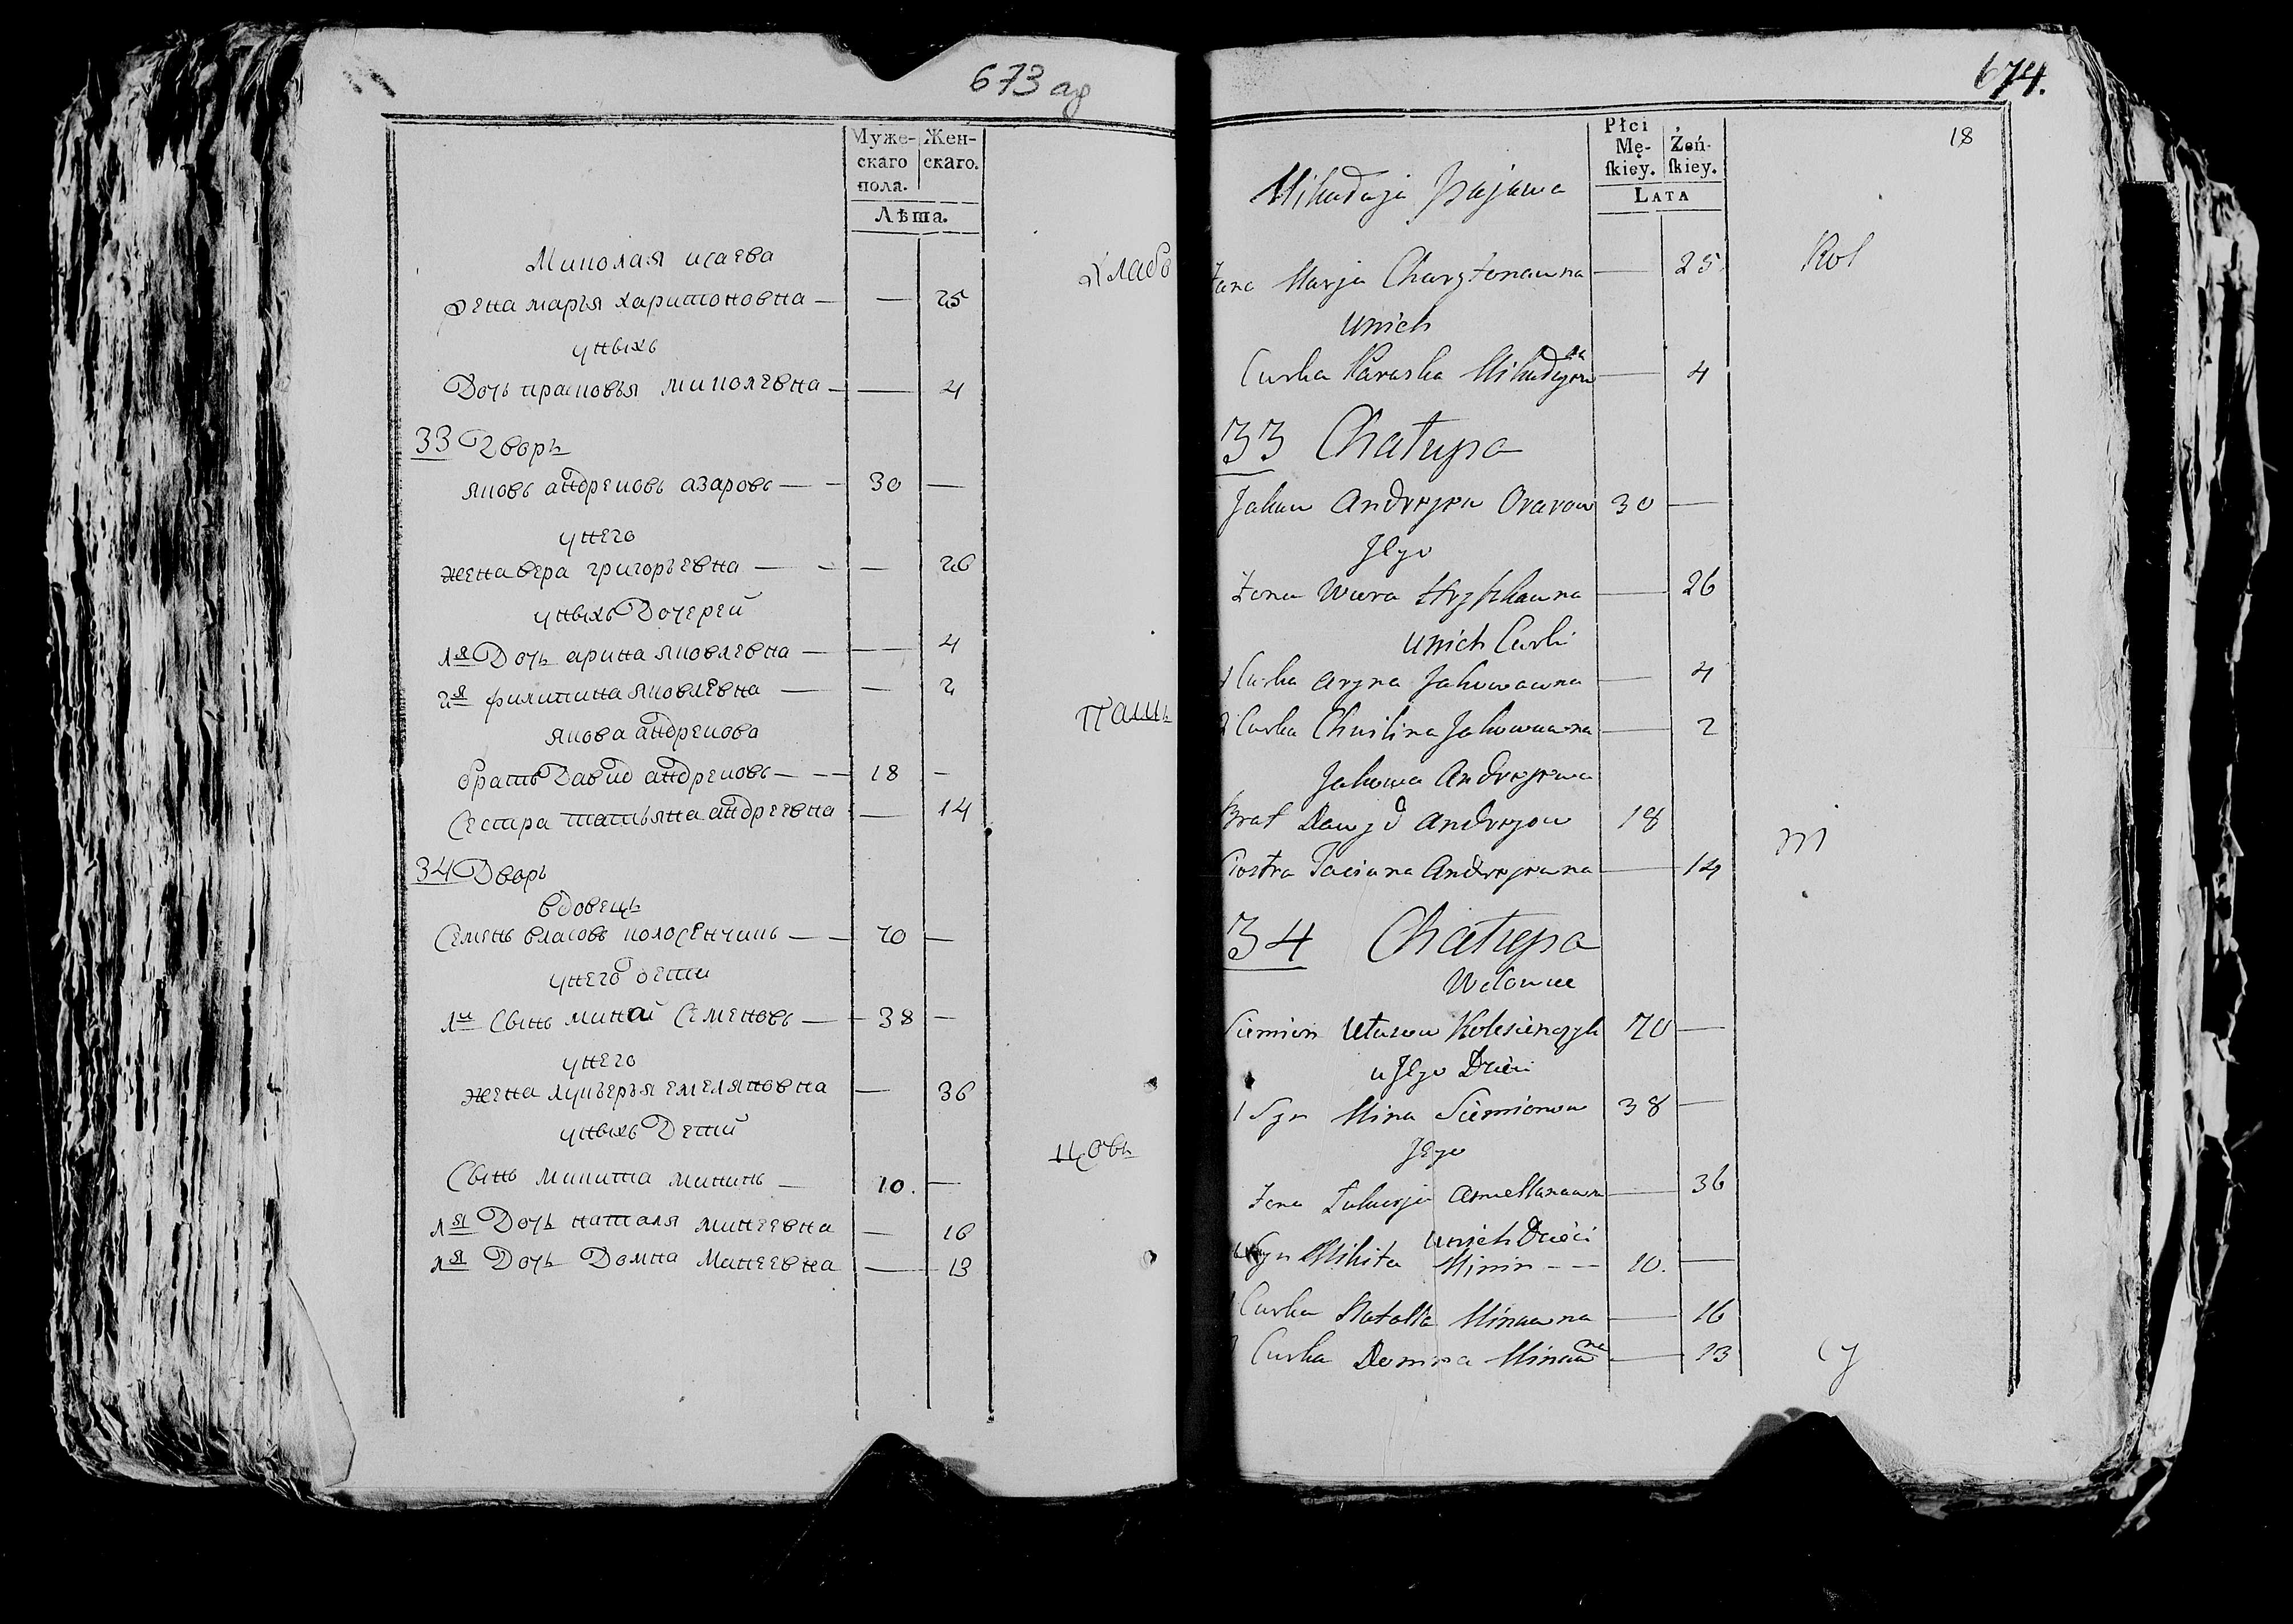 673 ад
Муже-
скаго
пола.
Жен-
скаго.
Лѣта.
Миколая исаева
жена марья харитоновна — — 25
унихъ
Дочь прасковья миколевна — — 4
33 Дворъ
яковъ андреиовъ азаровъ — — 30 —
унего
жена вера григорьевна — — — 26
унихъ Дочерей
1я Дочь арина яковлевна — — 4
2я филипина яковлевна — — 2
якова андреиова
братъ Давид андреиовъ — — 18 —
Сестра татьяна андреевна — 14
34 Дворъ
вдовецъ
Семенъ власовъ колосенчикъ — — 70 —
унего дети
1и Сынъ минай Семеновъ — 38 —
унего
жена лукерья емеляновна — 36
унихъ Детий
Сынъ микита мининъ — 10. —
1я Дочь наталя минеевна — 16
Дочь Домна Минеевна — 13
674.
18
Płci
Mę-
skiey.
Żeń-
skiey.
LATA
Żona Marja Charytonawna — 25
Unich
Curka Paraska — 4
33 Chałupa
Jakow Andrejew Ozarow 30 —
Jego
Żona Wiera — 26
Unich Curki
1 Curka Aryna Jakowawna — 4
2 Curka Jakowawna — 2
Jakowa Andrejewa
Brat Dawyd Andrejow 18
Siostra Taciana Andrejewna — 14
34 Chałupa
Siemion Ułasow Kolesienczyk 70 —
u Jego Dzieci
1 Syn Mina Siemionow 38 —
Jego
Żona Łukierja — 36
Unich Dzieci
Syn Mikita Minin - - 10. —
Curka Natalla Minawna — 16
Curka Domna Minawna — 13